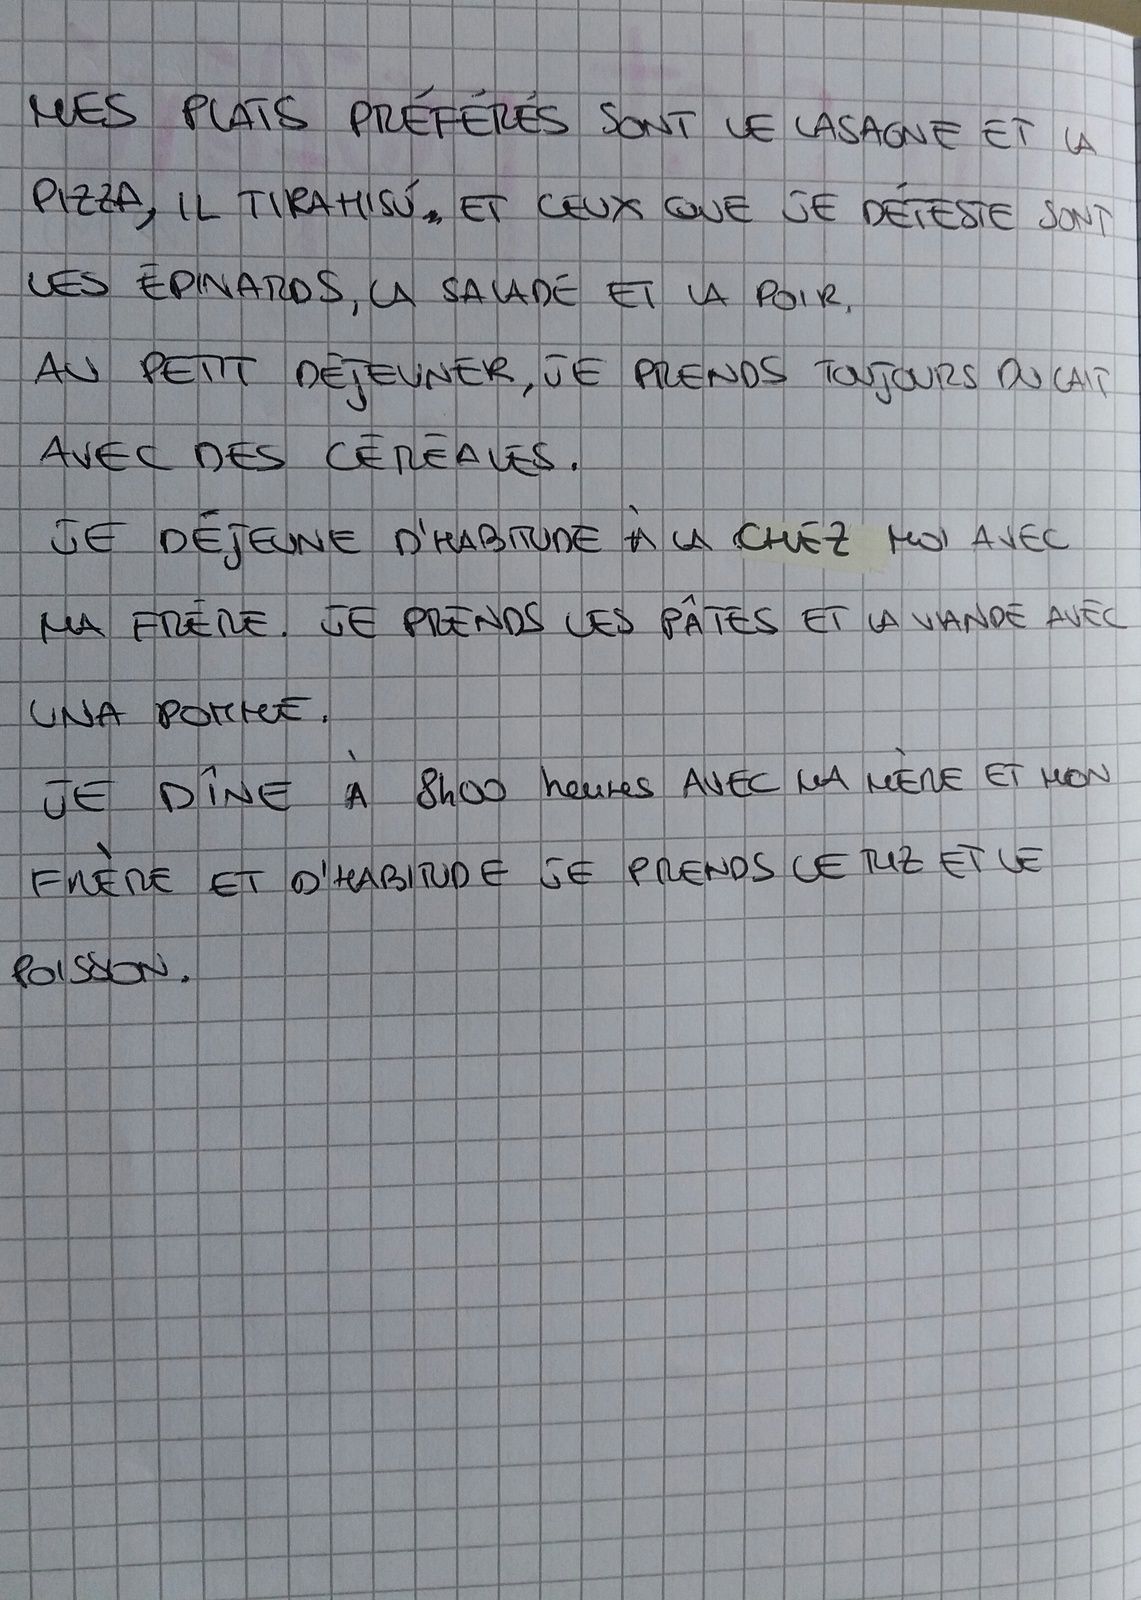 MES PLATS PRÉFÉRÉS SONT LE LASAGNE ET LA
PIZZA, IL TIRAMISÚ. ET CEUX QUE JE DÉTESTE SONT
LES ÉPINARDS, LA SALADE ET LA POIR.
AU PETIT DÉJEUNER, JE PRENDS TOUJOURS DU LAIT
AVEC DES CÉRÉALES.
JE DÉJEUNE D'HABITUDE À LA CHEZ MOI AVEC
MA FRÈRE. JE PRENDS LES PÂTES ET LA VIANDE AVEC
UNA POMME.
JE DÎNE À 8h00 heures AVEC MA MÈRE ET MON
FRÈRE ET D'HABITUDE JE PRENDS LE RIZ ET LE
POISSON.